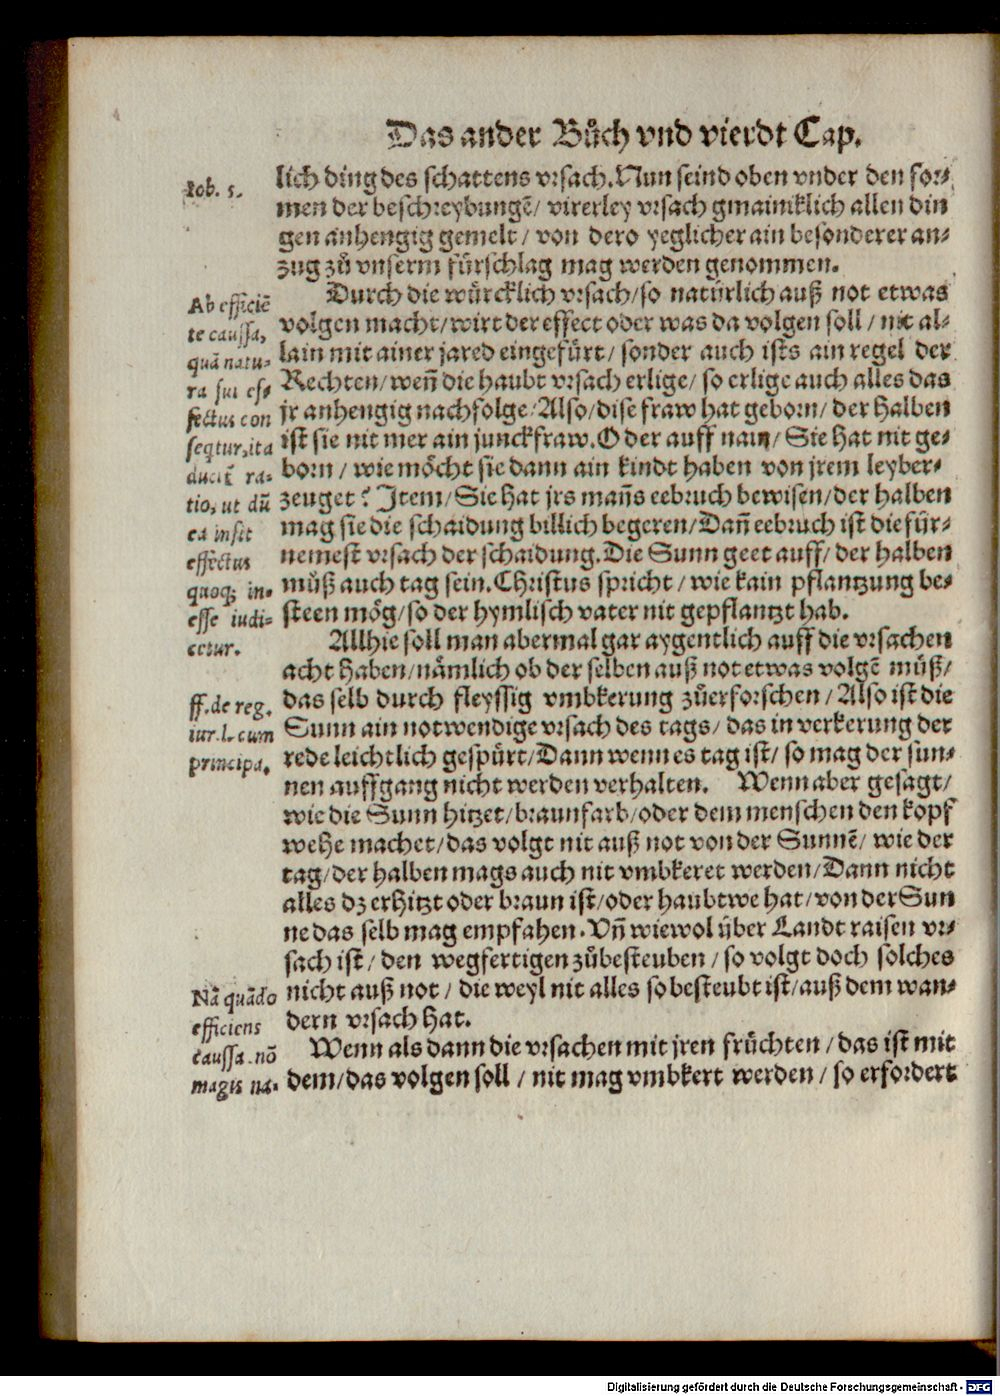 Das ander Bůch vnd vierdt Cap.
Iob. 5.
lich ding des schattens vrsach. Nun seind oben vnder den for⸗
men der beschreybungē/ virerley vrsach gmainiklich allen din
gen anhengig gemelt/ von dero yeglicher ain besonderer an⸗
zug zů vnserm fürschlag mag werden genommen.
Durch die würcklich vrsach/so natürlich auß not etwas
volgen macht/wirt der effect oder was da volgen soll/ nit al⸗
lain mit ainer jared eingefürt/ sonder auch ists ain regel der
Rechten/ weñ die haubt vrsach erlige/ so erlige auch alles das
jr anhengig nachfolge/Also/dise fraw hat geborn/ der halben
ist sie nit mer ain junckfraw. Oder auff nain/ Sie hat nit ge⸗
born/ wie möcht sie dann ain kindt haben von jrem leyb er⸗
zeuget? Item/ Sie hat jrs mañs eebruch bewisen/der halben
mag sie die schaidung billich begeren/Dañ eebruch ist die für⸗
nemest vrsach der schaidung. Die Sunn geet auff/ der halben
můß auch tag sein. Christus spricht/ wie kain pflantzung be⸗
steen mög/so der hymlisch vater nit gepflantzt hab.
Ab efficiē
te caussa,
quā natu-
ra sui ef-
fectus con
seqtur, ita
ducit̃ ra-
tio, ut dū
ea insit
effectus
quoq; in-
esse iudi-
cetur.
Allhie soll man abermal gar aygentlich auff die vrsachen
acht haben/nämlich ob der selben auß not etwas volgē müß/
das selb durch fleyssig vmbkerung zůerforschen/ Also ist die
Sunn ain notwendige vrsach des tags/ das in verkerung der
rede leichtlich gespürt/Dann wenn es tag ist/ so mag der sun⸗
nen auffgang nicht werden verhalten. Wenn aber gesagt/
wie die Sunn hitzet/braunfarb/oder dem menschen den kopf
wehe machet/das volgt nit auß not von der Sunnē/ wie der
tag/der halben mags auch nit vmbkeret werden/Dann nicht
alles dz erhitzt oder braun ist/oder haubtwe hat/von der Sun
ne das selb mag empfahen. Vñ wiewol über Landt raisen vr⸗
sach ist/ den wegfertigen zůbesteuben/ so volgt doch solches
nicht auß not/ die weyl nit alles so besteubt ist/auß dem wan⸗
dern vrsach hat.
ff. de reg.
iur. l. cum
principa.
Wenn als dann die vrsachen mit jren früchten/ das ist mit
dem/das volgen soll/ nit mag vmbkert werden/ so erfordert
Nā quādo
efficiens
caussa nō
magis na-
Digitalisierung gefördert durch die Deutsche Forschungsgemeinschaft - DFG